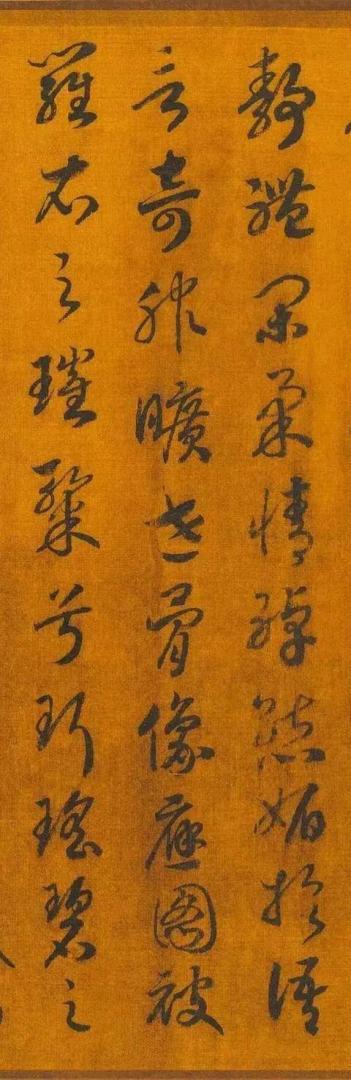 靜體閑柔情綽態媚於語
言奇服曠世骨像應圖被
羅衣之璀粲兮珥瑤碧之